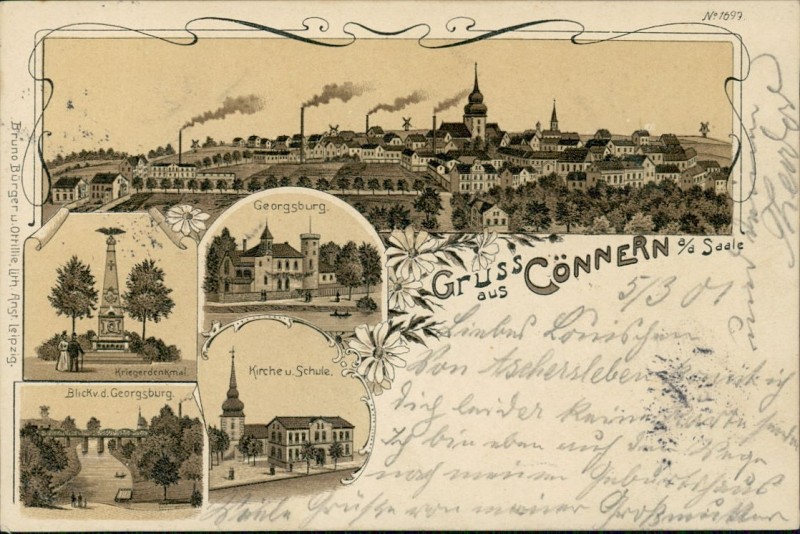 No 1697.
Bruno Bürger u. Ottillie, lith. Anst. Leipzig.
Georgsburg.
Gruss aus CÖNNERN a/d Saale
Kriegerdenkmal.
Kirche u. Schule.
Blick v. d. Georgsburg.
5/3 01
Liebes Louischen
Von Aschersleben ich
dich leider keine Karte
Ich bin eben auf dem Wege
nach meinem Geburtshaus
Viele Grüße von meiner Großmutter
und
Theodor